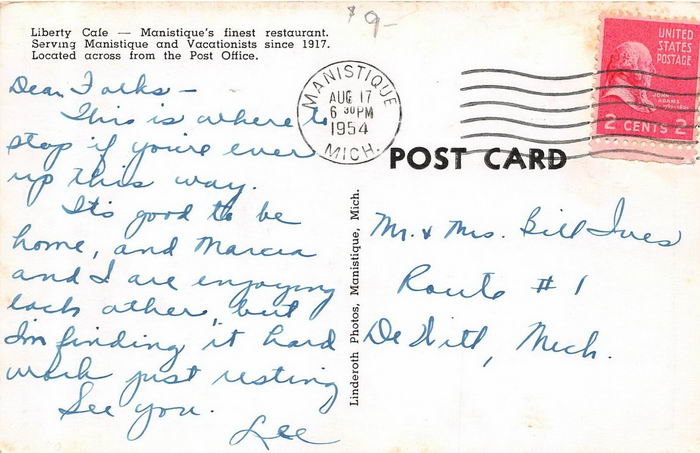 $9-
Liberty Cafe — Manistique's finest restaurant.
Serving Manistique and Vacationists since 1917.
Located across from the Post Office.
Dear Folks —
This is where to
stop if you're ever
up this way.
It's good to be
home, and Marcia
and I are enjoying
each other, but
I'm finding it hard
work just resting
See you.
Lee
MANISTIQUE
AUG 17
6 30 PM
1954
MICH.
UNITED
STATES
POSTAGE
JOHN
ADAMS
2 CENTS 2
POST CARD
Linderoth Photos, Manistique, Mich.
Mr. & Mrs. Bill Ives
Route #1
DeWitt, Mich.